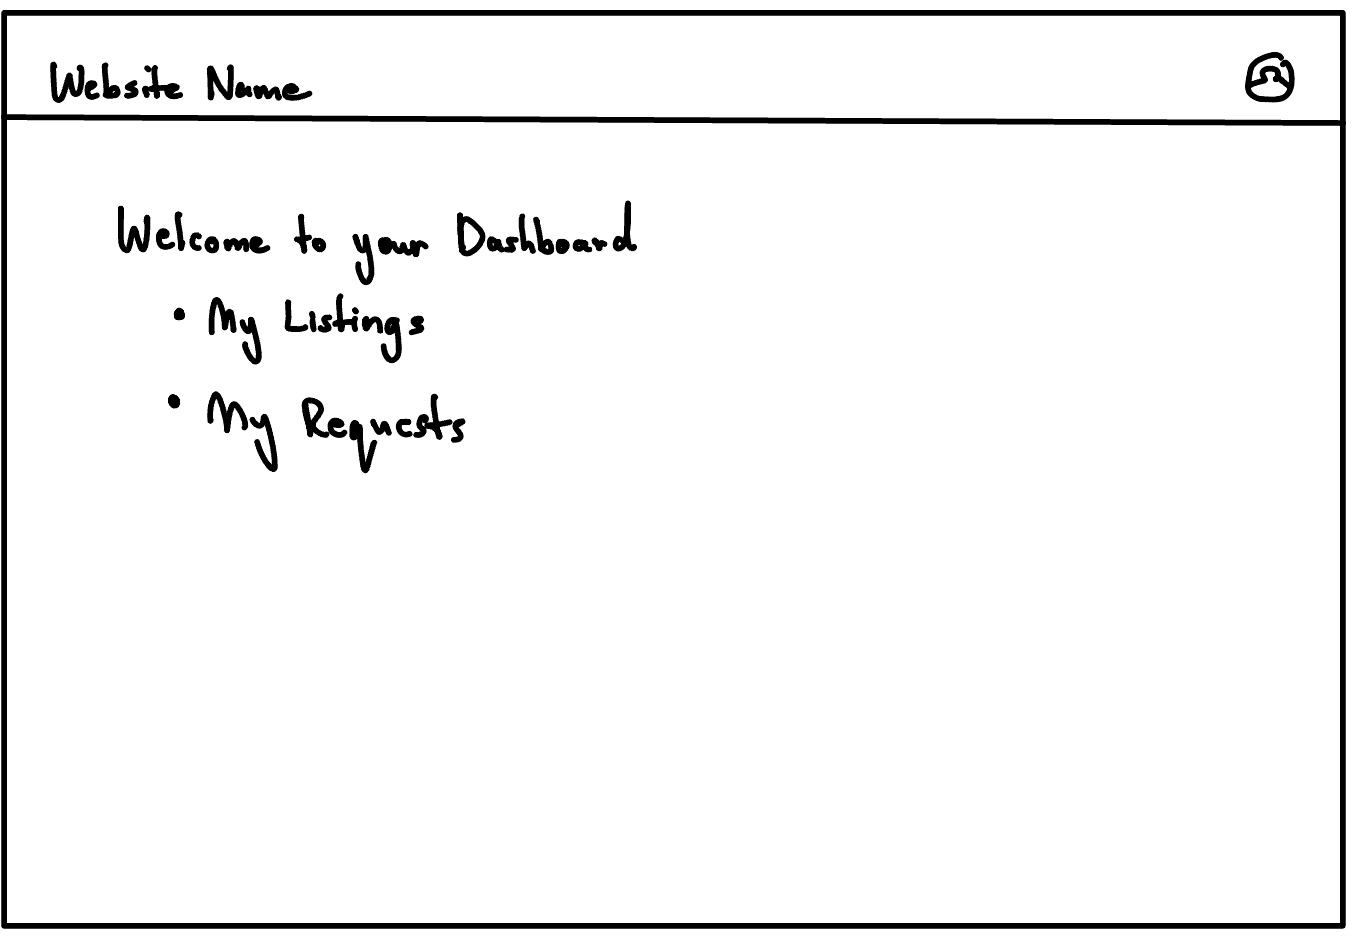 Website Name
Welcome to your Dashboard
• My Listings
• My Requests